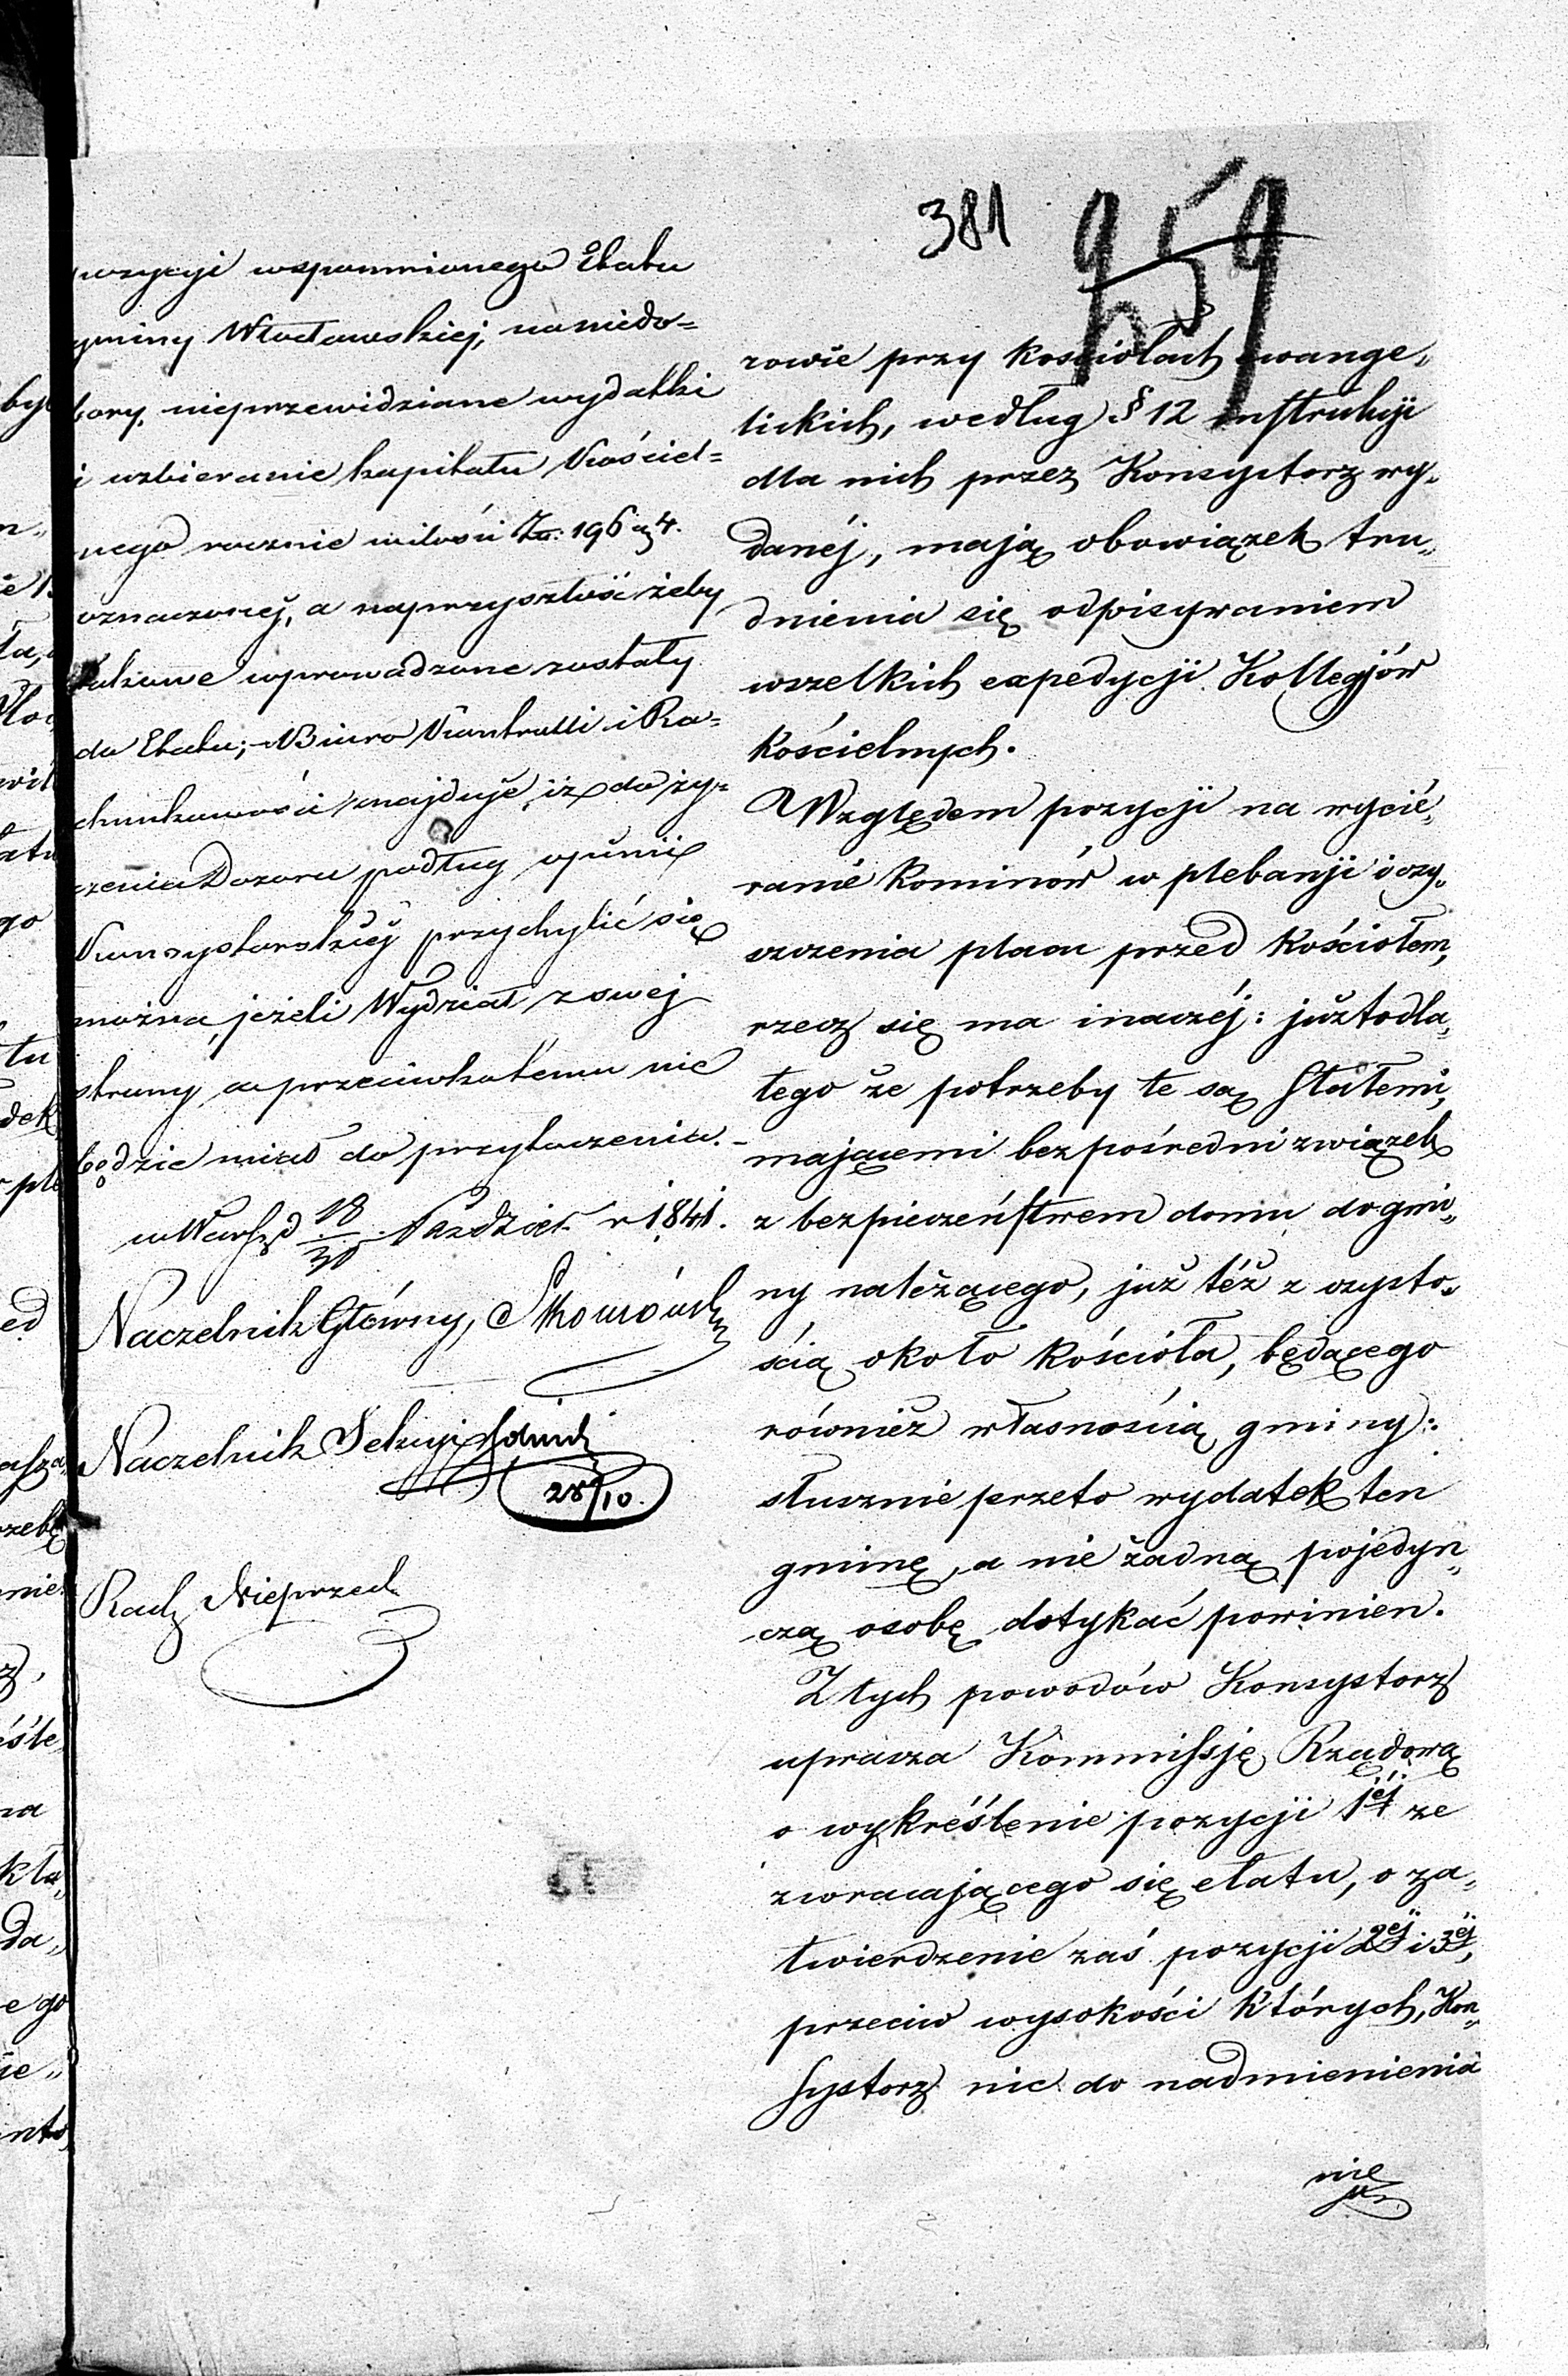 381
959
pozycyi wspomnionego Etatu
gminy Włocławskiej, na niedo=
bory, nieprzewidziane wydatki
i uzbieranie kapitału Kościel=
nego rocznie w ilości Zło: 196 g 4.
oznaczonej, a na przyszłość żeby
takowe wprowadzone zostały
do Etatu; Biuro Kontrolli i Ra=
chunkowości znajduje, iż do ży=
czenia Dozoru podług opinii
Konsystorskiéj przychylić się
można, jeżeli Wydział z swej
strony, a przeciwko temu nie
będzie miał do przytoczenia.
w Warsz d 18/30 Paździer r 1841.
Naczelnik Główny,
Naczelnik Sekcyi
28/10
Radz Nieprzec
rowie przy kościołach ewange„
lickich, według § 12 instrukcji
dla nich przez Konsystorz wy„
danéj, mają obowiązek tru„
dnienia się odpisywaniem
wszelkich expedycji Kollegjów
kościelnych.
Względem pozycji na wycié„
ranie kominów w plebanji i czy„
szczenia placu przed kościołem,
rzecz się ma inaczéj: już to dla„
tego że potrzeby te są stałemi,
mającemi bezpośredni związek
z bezpieczeństwem domu do gmi„
ny należącego, już téż z czysto„
ścią około kościoła, będącego
również własnością gminy:
słusznie przeto wydatek ten
gminę, a nie żadną pojedyn„
czą osobę dotykać powinien.
Z tych powodów Konsystorz
uprasza Kommissję Rządową
o wykréślenie pozycji 1éj ze
zwracającego się etatu, o za„
twierdzenie zaś pozycji 2éj i 3éj,
przeciw wysokości których, Kon„
systorz nic do nadmienienia
nie